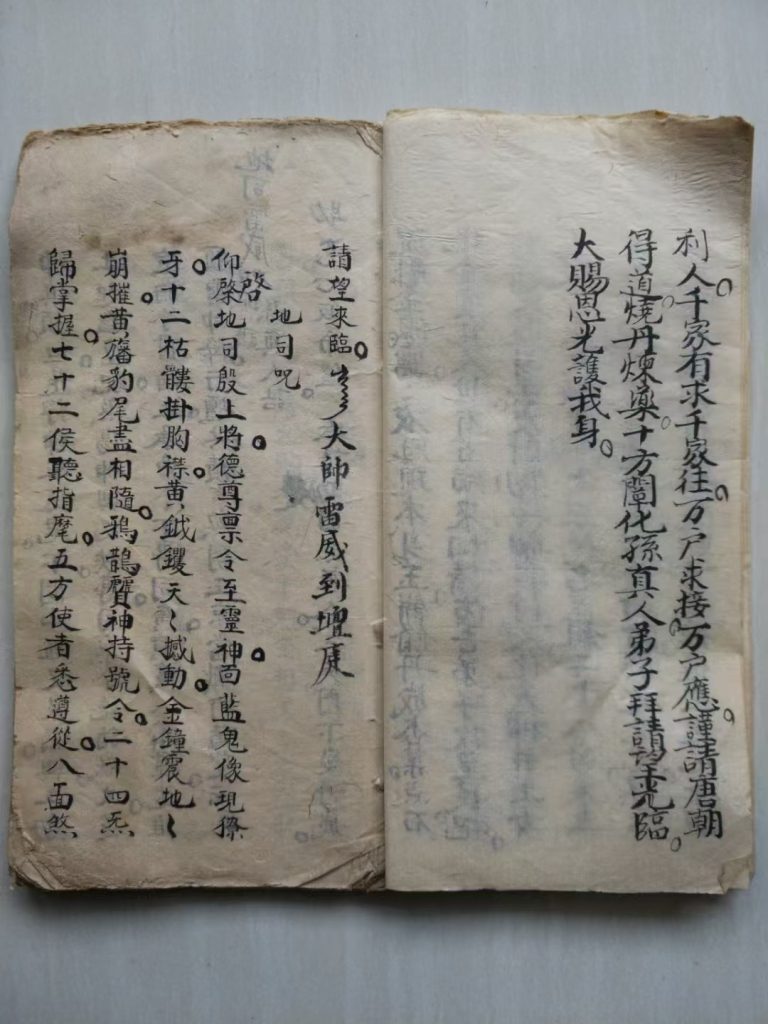 利人。千家有求千家往。万户求接万户應。謹請唐朝
得道。燒丹煉藥。十方闡化孫真人。弟子拜請望光臨。
大賜恩光護我身。
請望來臨。大帥雷威到壇庭
地司咒
仰啓地司殷上將。德尊禀令至靈神。面藍鬼像現獠
牙。十二枯髏掛胸襟。黄鉞鑊天〻撼動。金鐘震地〻
崩摧。黄旛豹尾盡相隨。鴉鵲神持號令。二十四炁
歸掌握。七十二侯聽指麾。五方使者悉遵從。八面煞